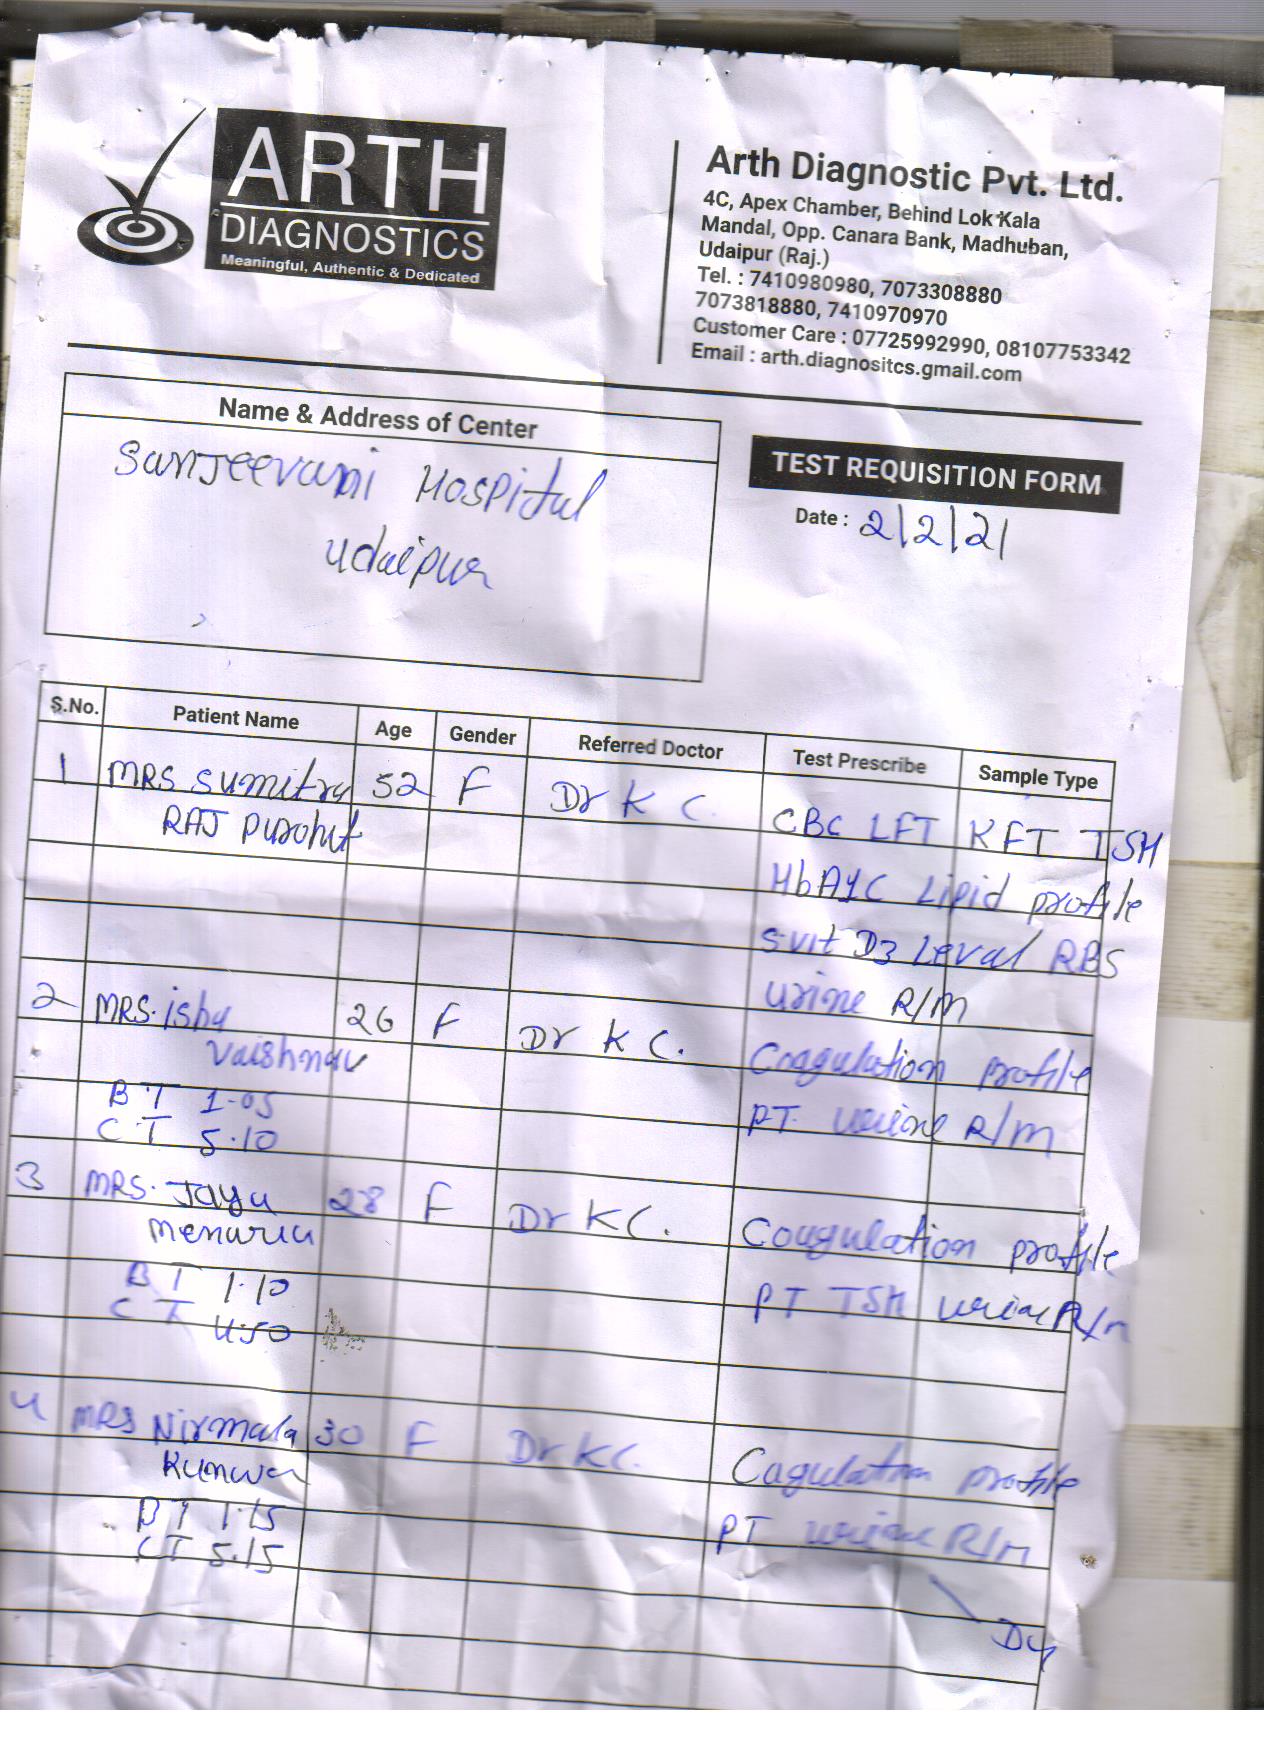 ARTH
DIAGNOSTICS
Meaningful, Authentic & Dedicated
Arth Diagnostic Pvt. Ltd.
4C, Apex Chamber, Behind Lok Kala
Mandal, Opp. Canara Bank, Madhuban,
Udaipur (Raj.)
Tel. : 7410980980, 7073308880
7073818880, 7410970970
Customer Care : 07725992990, 08107753342
Email : arth.diagnositcs.gmail.com
Name & Address of Center
Sanjeevani Hospital
Udaipur
TEST REQUISITION FORM
Date : 2/2/21
S.No. Patient Name Age Gender Referred Doctor Test Prescribe Sample Type
1 MRS Sumitra 52 F Dr K C. CBC LFT KFT TSH
RAJ Purohit
HbA1C Lipid profile
S vit D3 Leval RBS
Urine R/M
2 MRS. isha 26 F Dr K C. Coagulation profile
Vaishnav
PT urine R/M
B T 1-05
C T 5.10
3 MRS. Jaya 28 F Dr K C. Coagulation profile
Menaria
PT TSH urine R/M
B T 1.10
C T 4.50
4 MRS Nirmala 30 F Dr K C. Cagulation profile
Kunwar
PT urine R/M
B T 1.15
C T 5.15